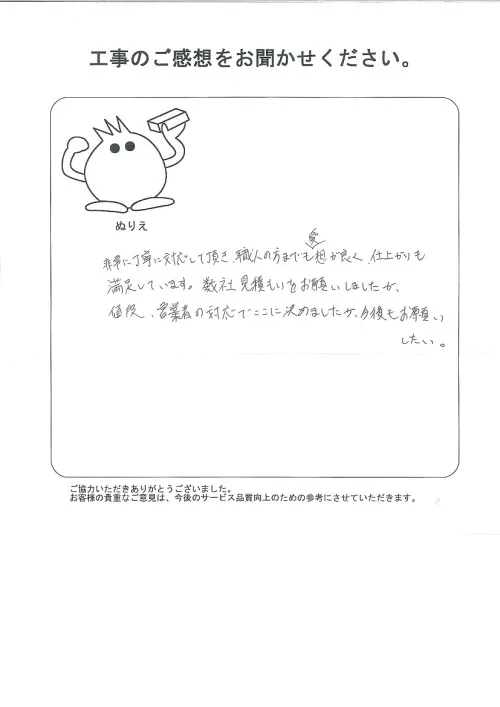 工事のご感想をお聞かせください。
ぬりえ
愛
非常に丁寧に対応して頂き、職人の方までも想が良く、仕上がりも
満足しています。数社見積もりをお願いしましたが、
値段、営業者の対応でここに決めましたが、今後もお願い
したい。
ご協力いただきありがとうございました。
お客様の貴重なご意見は、今後のサービス品質向上のための参考にさせていただきます。